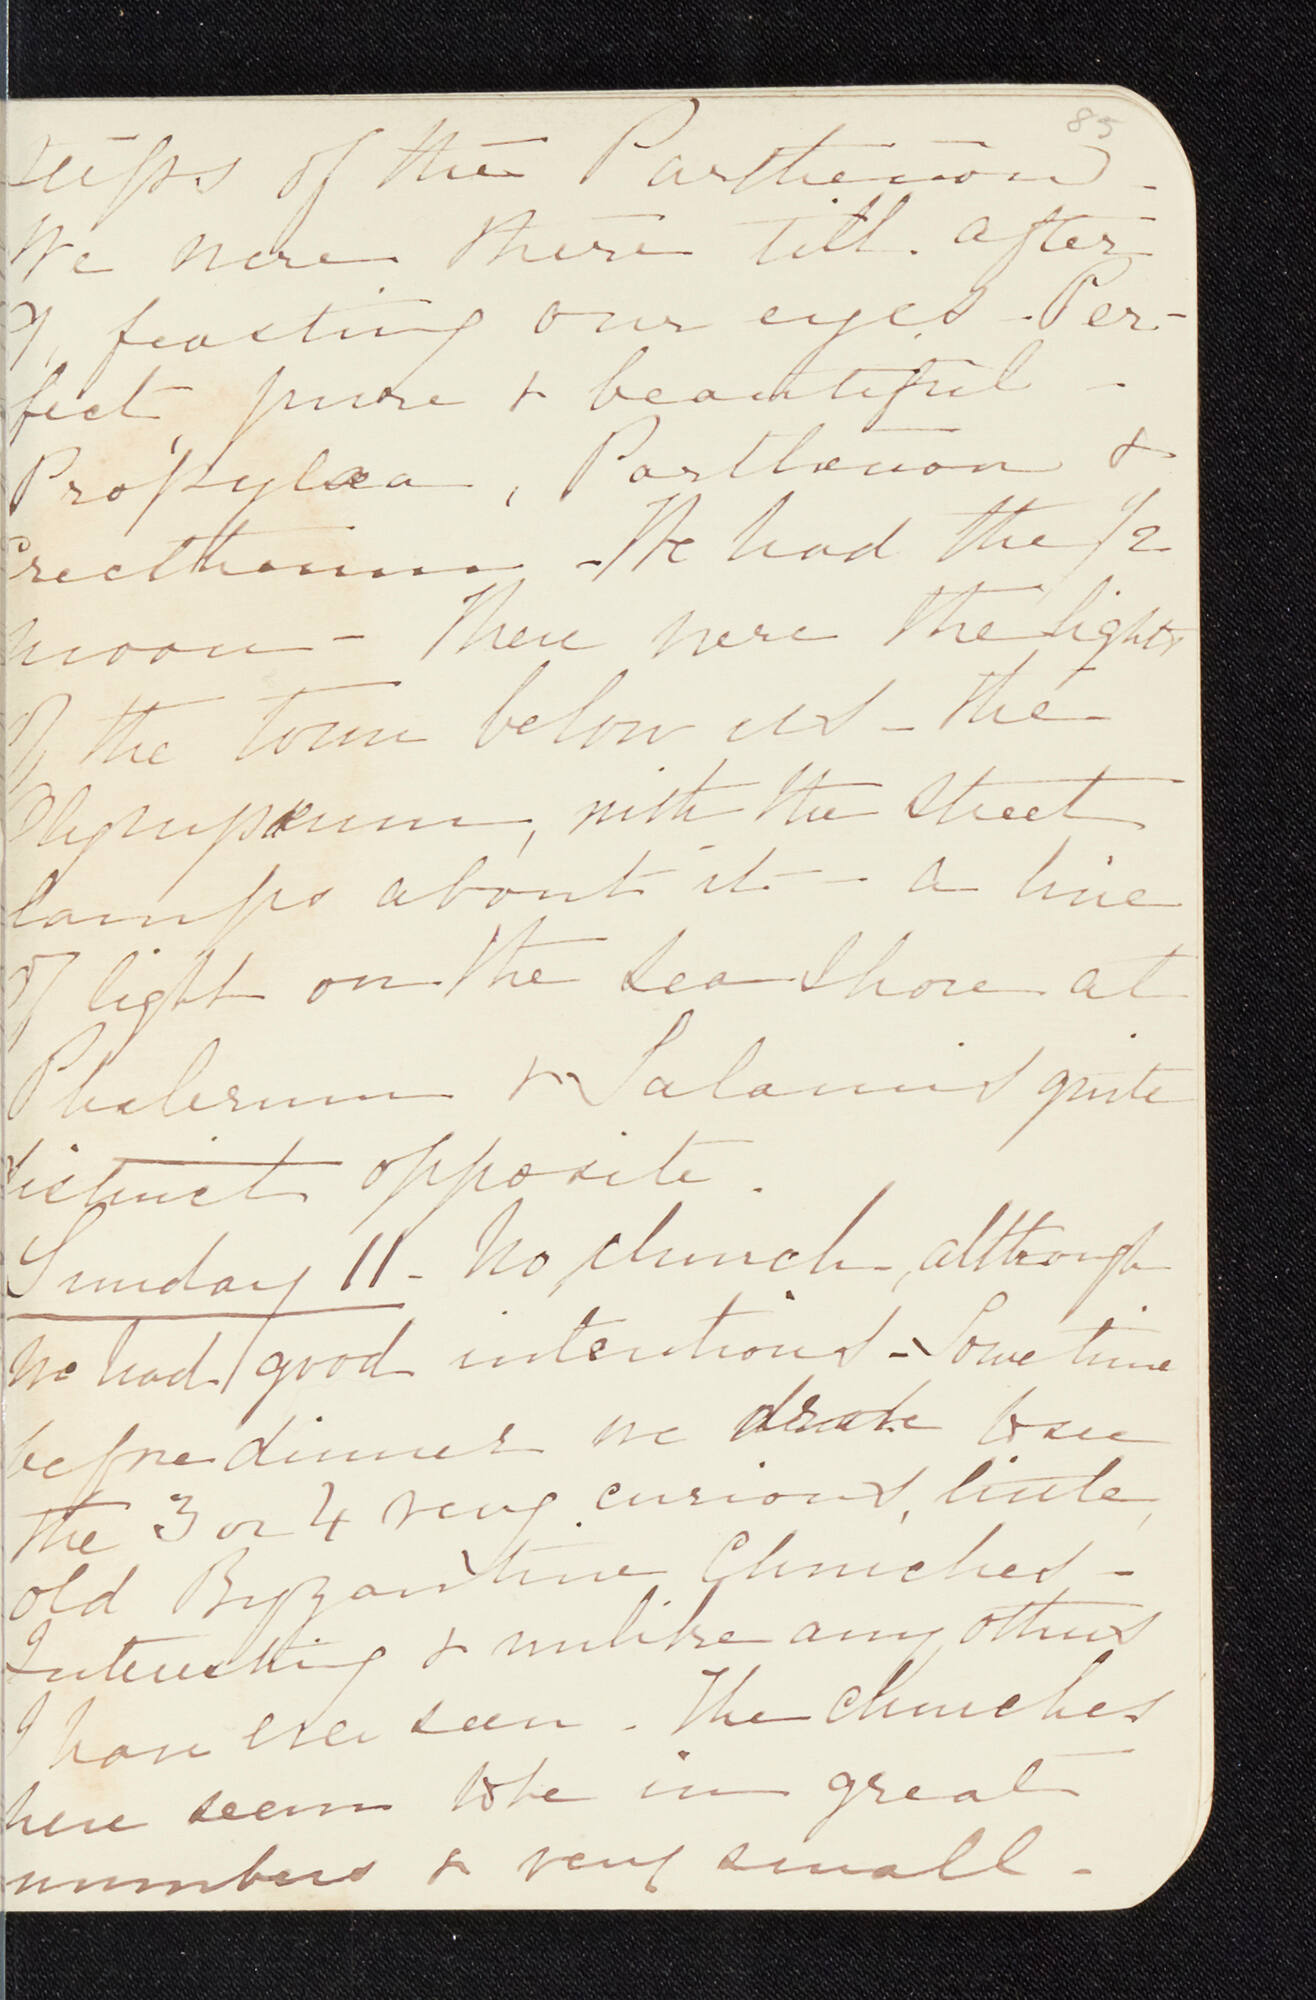 85
steps of the Parthenon -
We were there till after
7, feasting our eyes - Per-
fect, pure & beautiful -
Propylæa, Parthenon &
Erectheum - We had the 1/2
moon - There were the lights
of the town below us - the
Olympæum, with the street
lamps about it - a line
of light on the sea shore at
Phalerum & Salamis quite
distinct opposite.
Sunday 11 - No church, although
we had good intentions - Some time
before dinner we drove to see
the 3 or 4 very curious, little,
old Byzantine Churches -
Interesting & unlike any others
I have ever seen. The churches
here seem to be in great
numbers & very small -